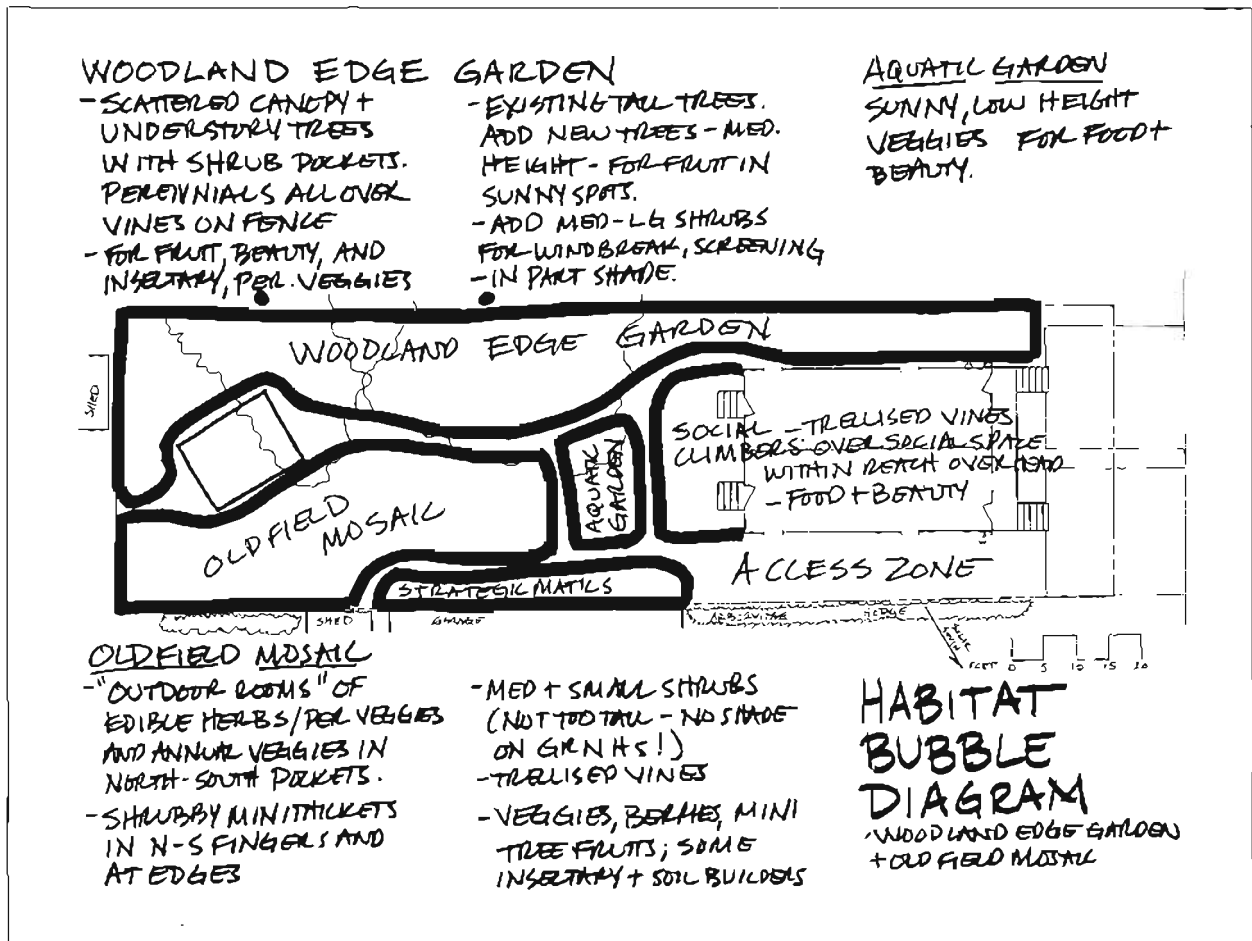 WOODLAND EDGE GARDEN
- SCATTERED CANOPY +
UNDERSTORY TREES
WITH SHRUB POCKETS.
PERENNIALS ALL OVER
VINES ON FENCE
- FOR FRUIT, BEAUTY, AND
INSECTARY, PER. VEGGIES
- EXISTING TALL TREES.
ADD NEW TREES - MED.
HEIGHT - FOR FRUIT IN
SUNNY SPOTS.
- ADD MED-LG SHRUBS
FOR WINDBREAK, SCREENING
- IN PART SHADE.
AQUATIC GARDEN
SUNNY, LOW HEIGHT
VEGGIES FOR FOOD +
BEAUTY.
WOODLAND EDGE GARDEN
SHED
SOCIAL - TRELLISED VINES
CLIMBERS: OVER SOCIAL SPACE
WITHIN REACH OVERHEAD
- FOOD + BEAUTY
AQUATIC
GARDEN
OLDFIELD
MOSAIC
ACCESS ZONE
STRATEGIC MAT'LS
SHED
GARAGE
ARBORVITAE HEDGE
FEET 0 5 10 15 20
OLDFIELD MOSAIC
- "OUTDOOR ROOMS" OF
EDIBLE HERBS/PER VEGGIES
AND ANNUAL VEGGIES IN
NORTH-SOUTH POCKETS.
- SHRUBBY MINITHICKETS
IN N-S FINGERS AND
AT EDGES
- MED + SMALL SHRUBS
(NOT TOO TALL - NO SHADE
ON GRNHS!)
- TRELLISED VINES
- VEGGIES, BERRIES, MINI
TREE FRUITS; SOME
INSECTARY + SOIL BUILDERS
HABITAT
BUBBLE
DIAGRAM
- WOODLAND EDGE GARDEN
+ OLD FIELD MOSAIC